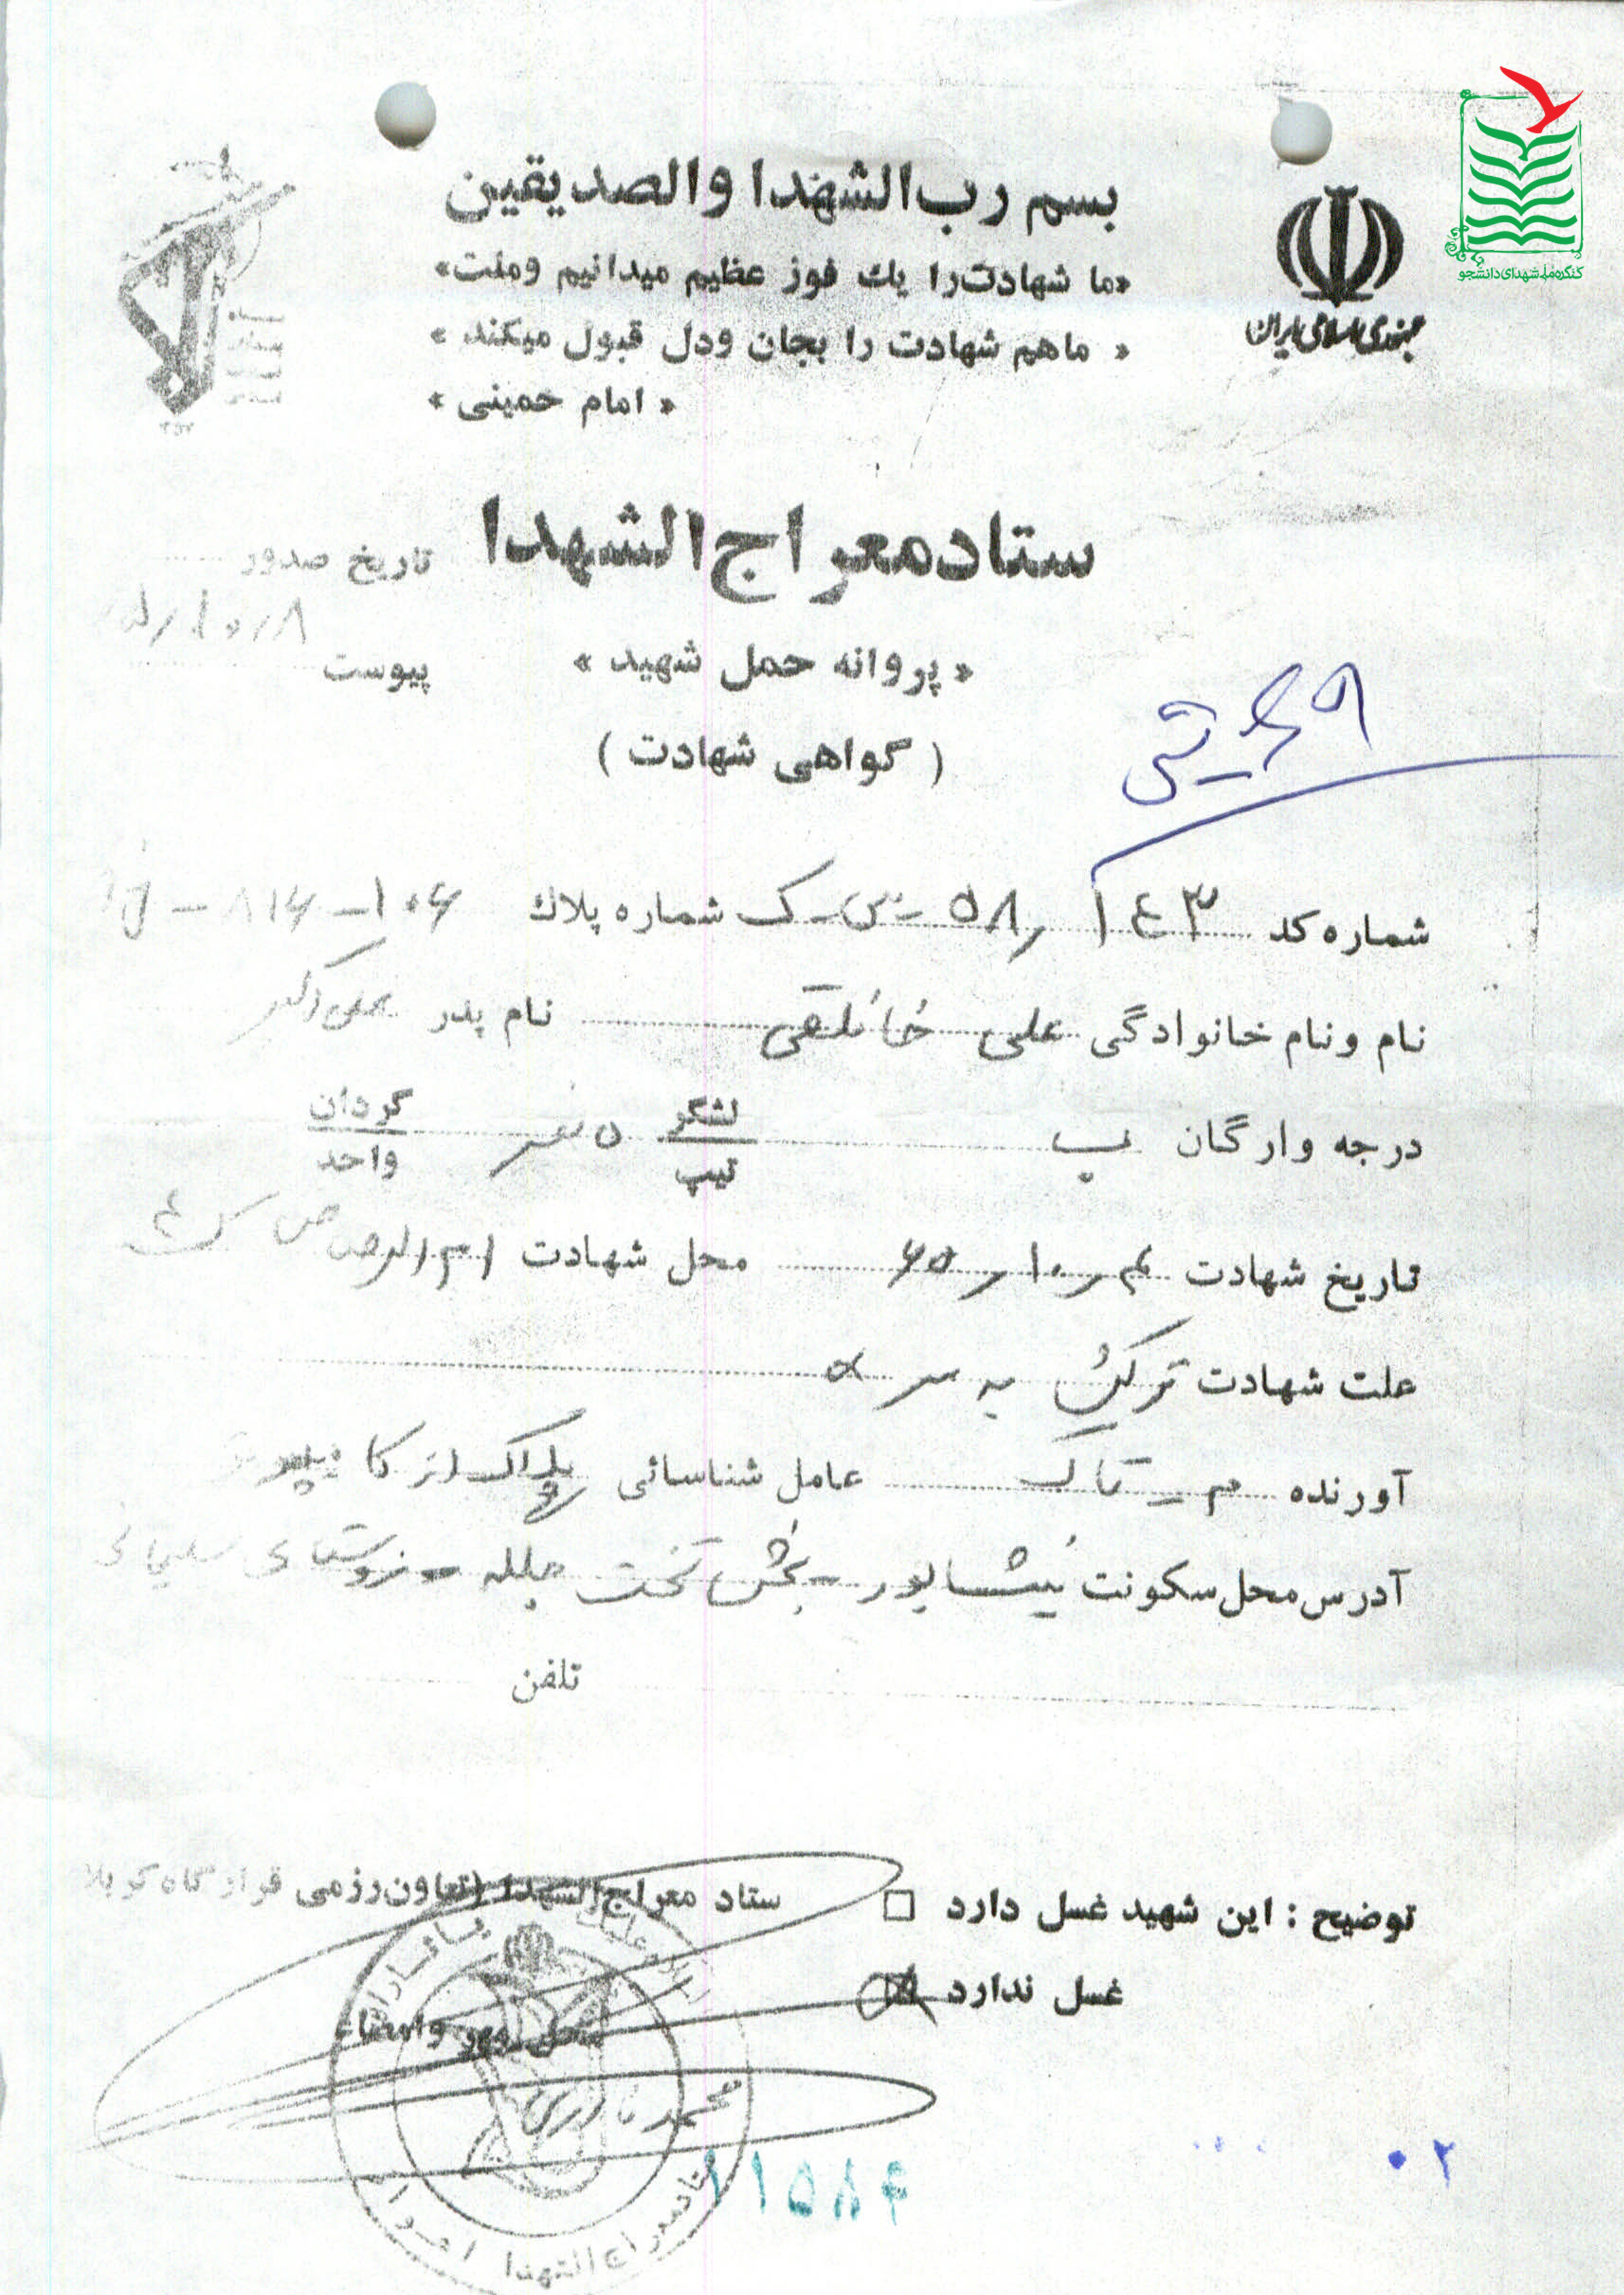 کنگره ملی شهدای دانشجو
جمهوری اسلامی ایران
بسم رب الشهدا والصدیقین
«ما شهادت را یك فوز عظیم میدانیم وملت»
« ماهم شهادت را بجان ودل قبول میکند »
« امام خمینی »
ستاد معراج الشهدا
تاریخ صدور
« پروانه حمل شهید »
پیوست
( گواهی شهادت )
شماره کد ۱۴۳ ر ۵۸ - س - ک شماره پلاك ۱۰۶ - ۸۱۶ -
نام ونام خانوادگی علی خانلقی نام پدر علی اکبر
درجه وارگان ب لشگر تیپ ۵ نصر گردان واحد
تاریخ شهادت ۴ ر ۱۰ ر ۶۵ محل شهادت ام الرصاص
علت شهادت ترکش به سر
آورنده عامل شناسائی پلاک
آدرس محل سکونت نیشابور - بخش تخت جلگه - روستای
تلفن
توضیح : این شهید غسل دارد □ ستاد معراج الشهدا (تعاون رزمی قرارگاه کربلا
غسل ندارد
محل مهر وامضاء
محمد نادری
ستاد معراج الشهدا اهواز
۱۱۵۸۴
۰۲